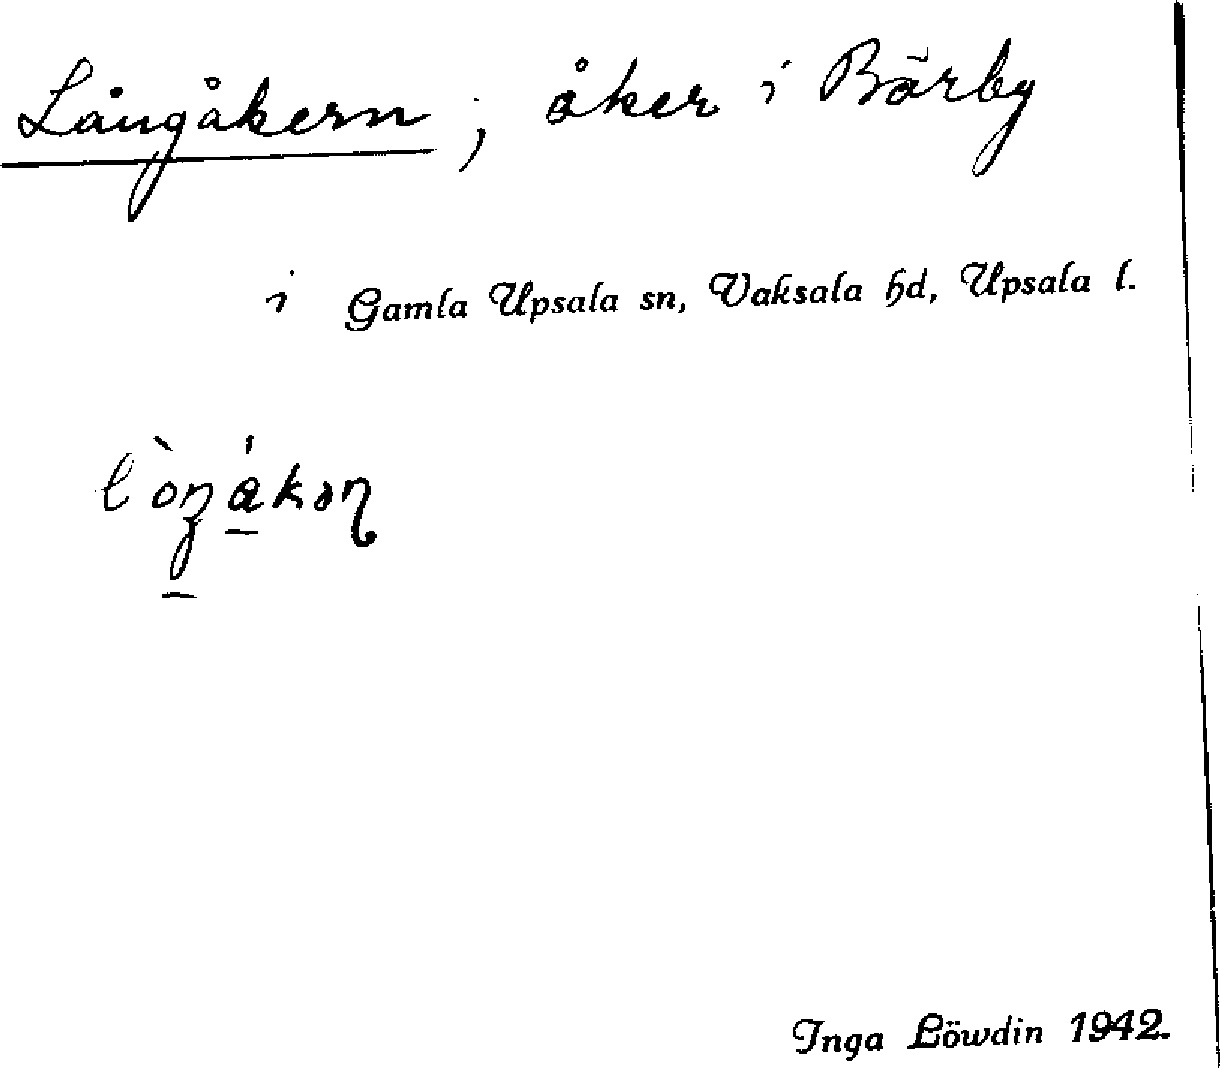 Långåkern ; åker i Bärby
i Gamla Upsala sn, Vaksala hd, Upsala l.
Inga Löwdin 1942.